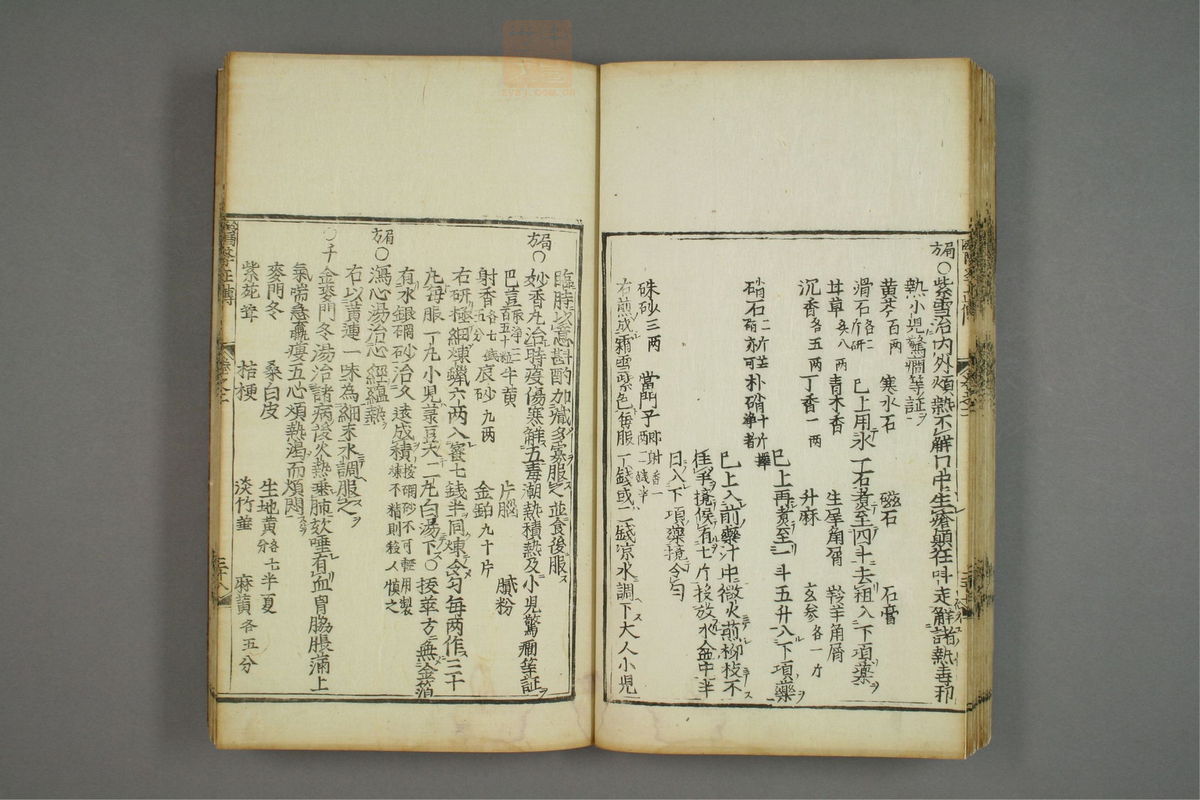 局方○紫雪治内外煩熱不解口中生瘡顛狂叫走解諸熱毒卭
熱小児驚癎等証
黄芩百両 寒水石 磁石 石膏
滑石各二斤研 已上用水一石煮至四斗去粗入下項薬
甘草炙八両 青木香 生犀角屑 羚羊角屑
沉香各五両 丁香一両 升麻 玄参各一斤
已上再煮至一斗五升入下項藥
硝石二斤芒硝亦可 朴硝十斤浄者
已上入前藥汁中微火煎柳枝不
住手攪候有七斤投放水盆中半
日入下項藥攪令匀
硃砂三両 當門子即射香一両二銭半
右煎成霜雪紫色毎服一銭或二銭凉水調下大人小児
臨時以意斟酌加減多寡服之並食後服
局方○妙香丸治時疫傷寒觧五毒潮熱積熱及小児驚癇等証
巴豆 牛黄 片脳 膩粉
射香各七銭五分 辰砂九両 金鉑九十片
右研極細煉蠟六両入蜜七銭半同煉令匀毎両作三十
丸毎服一丸小児菉豆大二丸白湯下○按華方無金箔
有水銀硇砂治久遠成積按硇砂不可輕用製煉不精則殺人慎之
局方○瀉心湯治心經蘊熱
右以黄連一味為細末水調服之
○千金麥門冬湯治諸病後火熱乗肺欬唾有血胷脇脹満上
氣喘急羸痩五心煩熱渇而煩悶
麥門冬 桑白皮 生地黄各七分 半夏
紫苑茸 桔梗 淡竹葉 麻黄各五分